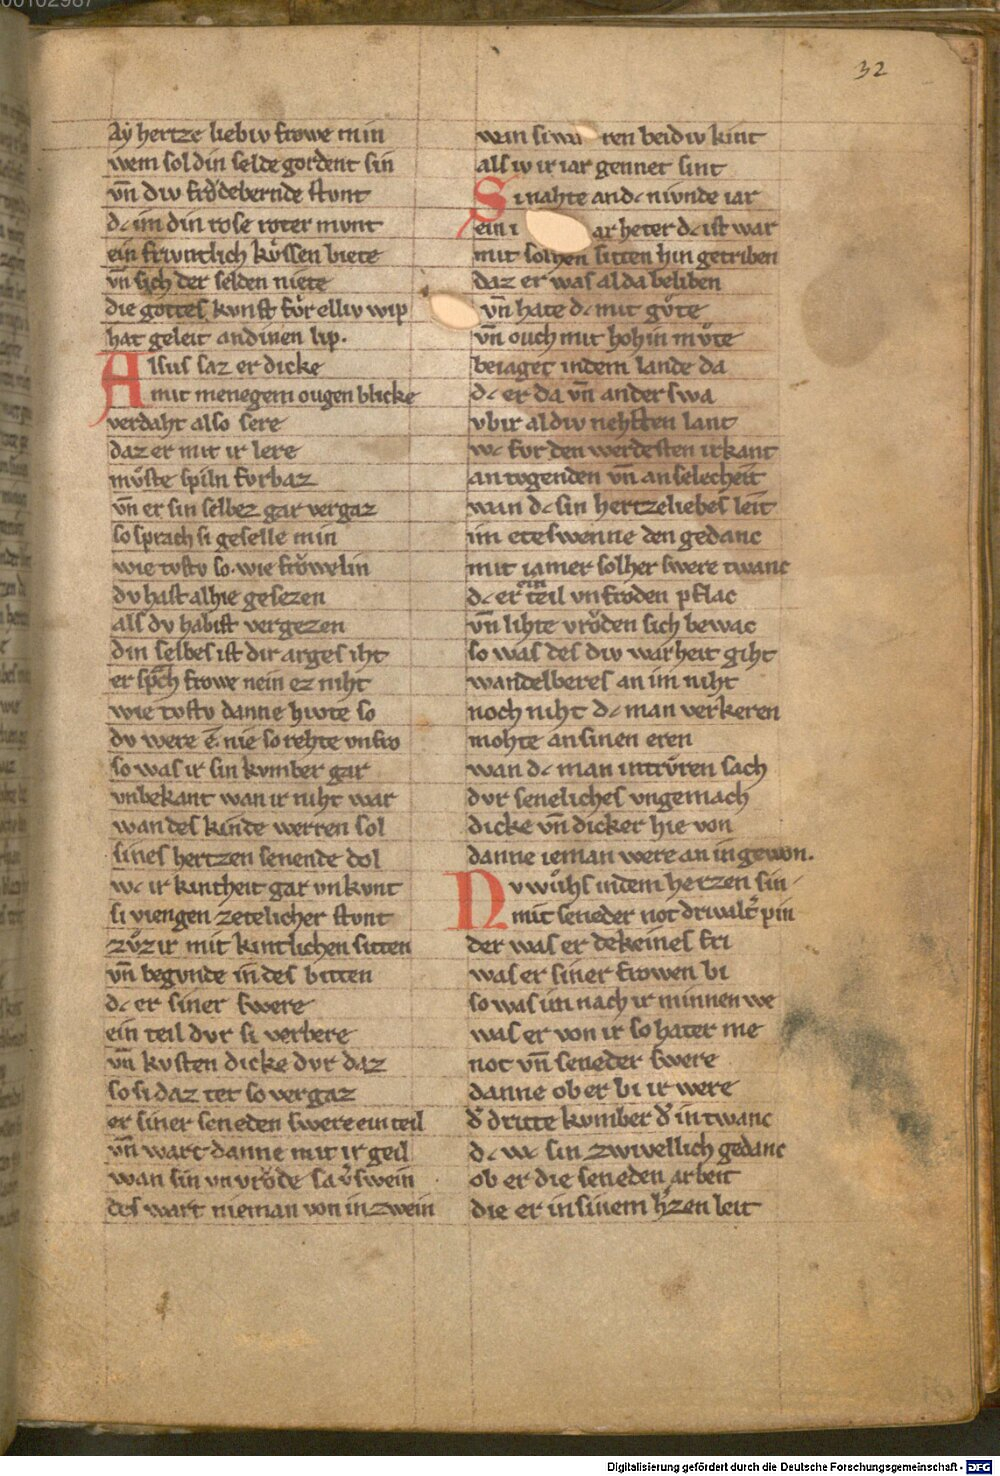 32
Aẏ hertze liebiv frowe min
wem sol din selde gordent sin
vn̄ div frodebernde stunt
dc im din rose roter mvnt
ein frivntlich kv̊ssen biete
vn̄ sich der selden niete
die gottes kvnst fv̊r elliv wip
hat geleit an dinen lip.
Alsus saz er dicke
mit menegem ougen blicke
verdaht also sere
daz er mit ir lere
mv̊ste spiln fvrbaz
vn̄ er sin selbez gar vergaz
so sprach si geselle min
wie tostv so. wie frȯwelin
dv hast alhie gesezen
als dv habist vergezen
din selbes ist dir arges iht
er spͣch frowe nein ez niht
wie tostv danne hivte so
dv were e. nie so rehte vnfro
so was ir sin kvmber gar
vnbekant wan ir niht war
wan des kinde werren sol
sines hertzen senende dol
wc ir kintheit gar vnkvnt
si viengen zetelicher stvnt
zv̊z ir mit kintlichen sitten
vn̄ begvnde in des bitten
dc er siner swere
ein teil dvr si verbere
vn̄ kvsten dicke dvr daz
so si daz tet so vergaz
er siner seneden swere ein teil
vn̄ wart danne mit ir geil
wan sin vnvrȯde sa v̓swein
des wart nieman von in zwein
wan si wa ren beidiv kint
als iv ir iar gennet sint
Si nahte an dc nivnde iar
ein i ar heter dc ist war
mit solhen sitten hin getriben
daz er was al da beliben
vn̄ hate dc mit gv̊te
vn̄ ouch mit hohin mv̊te
beiaget in dem lande da
dc er da vn̄ anderswa
vbir al div nehsten lant
wc fvr den werdesten irkant
an tvgenden vn̄ an selecheit
wan dc sin hertzeliebes leit
im eteswenne den gedanc
mit iamer solher swere twanc
dc er ein teil vnfroden pflac
vn̄ lihte vrȯden sich bewac
so was des div warheit giht
wandelberes an im niht
noch niht dc man verkeren
mohte an sinen eren
wan dc man in trv̊ren sach
dvr seneliches vngemach
dicke vn̄ dicker hie von
danne ieman were an in gewon.
Nv wv̊hs in dem herzen sin
mit seneder not drivalt̓ pin
der was er dekeines fri
was er siner frowen bi
so was im nach ir minnen we
was er von ir so hater me
not vn̄ seneder swere
danne ob er bi ir were
d̓ dritte kvmber d̓ in twanc
dc wc sin zwivellich gedanc
ob er die seneden arbeit
die er in sinem h̓zen leit
Digitalisierung gefördert durch die Deutsche Forschungsgemeinschaft - DFG